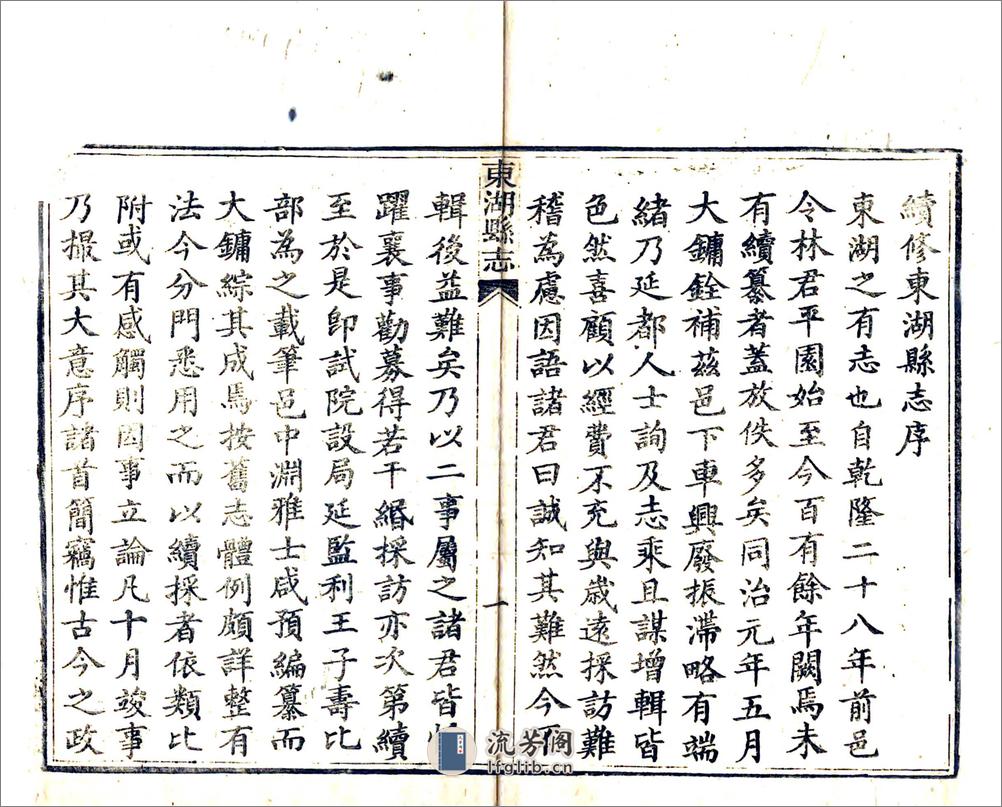 續修東湖縣志序
東湖之有志也自乾隆二十八年前邑
令林君平園始至今百有餘年闕焉未
有續纂者蓋放佚多矣同治元年五月
大鏞銓補茲邑下車興廢振滯略有端
緒乃延都人士詢及志乘且謀增輯皆
色然喜顧以經費不充與歲遠採訪難
稽為慮因語諸君曰誠知其難然今不
東湖縣志
一
輯後益難矣乃以二事屬之諸君皆
躍襄事勸募得若干緡採訪亦次第續
至於是即試院設局延監利王子壽比
部為之載筆邑中淵雅士咸預編纂而
大鏞綜其成焉按舊志體例頗詳整有
法今分門悉用之而以續採者依類比
附或有感觸則因事立論凡十月竣事
乃撮其大意序諸首簡竊惟古今之政
流芳阁
lfglib.cn